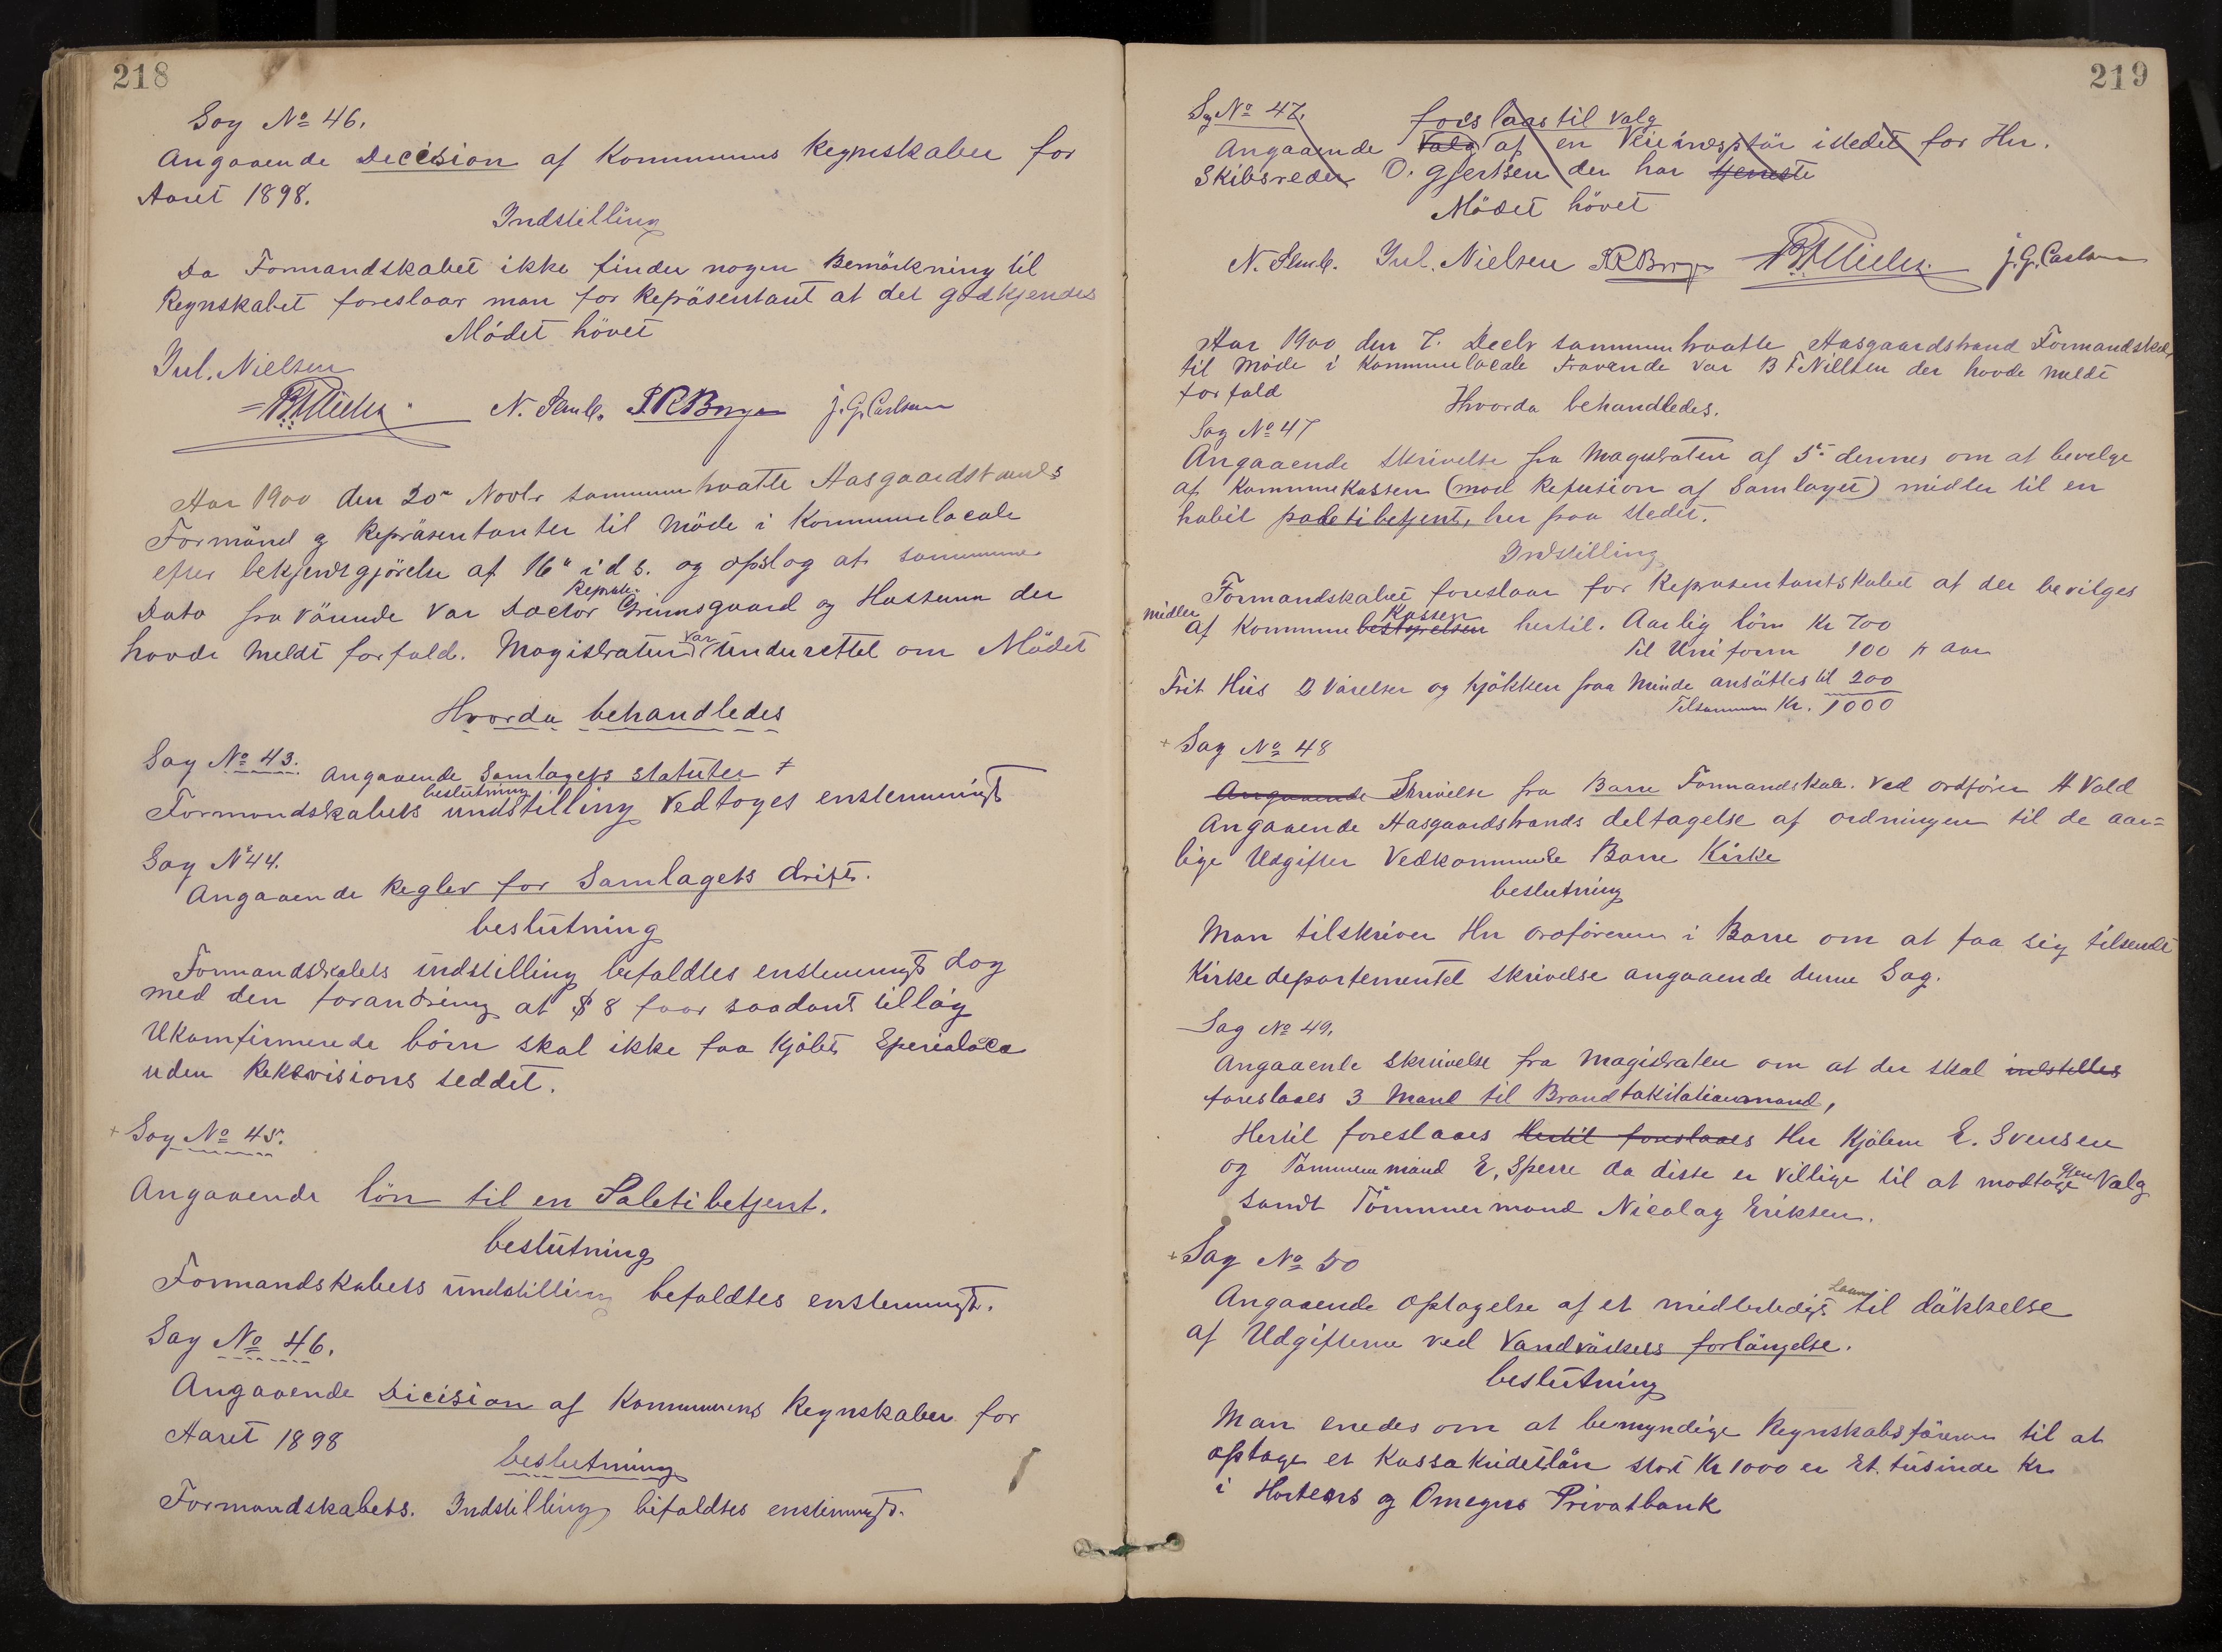 218
Sag No 46.
Angaaende Decision af Kommunens Regnskaber for
Aaret 1898.
Indstilling
Da Formandskabet ikke finder nogen Bemärkning til
Regnskabet foreslaar man for Repräsentant at det godkjendes
Mödet hövet
Jul. Nielsen
J. G. Carlsen
Aar 1900 den 20de Novbr sammentraatte Aasgaardstrands
Formänd og Repräsentanter til Möde i Kommunelocale
efter bekjendtgjörelse af 16de ids. og opslog at samme
Repräs.
Dato fra värende var Doctor Grimsgaard og Hassum der
havde meldt forfald. Magistraten var underettet om Mödet
Hvorda behandledes
Sag No 43. Angaaende Samlagets statuter +
beslutning
Formandskabets indstilling Vedtoges enstemmigt
Sag No 44.
Angaaende Regler for Samlagets drift.
beslutning
Formandskabets indstilling bifaldtes enstemmigt dog
med den forandring at § 8 faar saadant tilläg
Ukomfirmerede börn skal ikke faa kjöbt
uden Rekvisions seddel.
+ Sag No 45.
Angaaende lön til en Politibetjent.
beslutning
Formandskabets indstilling befaldtes enstemmigt.
Sag No 46.
Angaaende Dicision af Kommunens Regnskaber for
Aaret 1898
beslutning
Formandskabets. Indstilling bifaldtes enstemmigt.
219
Sag No 47. foreslaaes til valg
Angaaende Valg af en Veiinspektör istedet for Hr.
Skibsreder O. Gjertsen der har
Mödet hövet
Jul. Nielsen J. G. Carlsen
Aar 1900 den 7. Decbr sammentraatte Aasgaardstrand Formandskab
til Möde i Kommunelocale Fravende var B F Nillsen der havde meldt
forfald
Hvorda behandledes.
Sag No 47
Angaaende Skrivelse fra Magistraten af 5te dennes om at bevilge
af Kommunekassen (mod Refusion af Samlaget) midler til en
habil politibetjent, her paa stedet.
Indstilling
Formandskabet foreslaar for Repräsentantskabet at der bevilges
midler Kassen
af Kommunebestyrelsen hertil. Aarlig lönn Kr 700
Til Uniform 100 pr aar
Frit Hus 2 Värelser og kjökken paa Minde ansättes til 200
Tilsammen Kr. 1000
+ Sag No 48
Angaaende Skrivelse fra Borre Formandskab. Ved ordförer A Vold
Angaaende Aasgaardstrands deltagelse af ordningen til de aar=
lige Udgifter Vedkommende Borre Kirke
beslutning
Man tilskriver Hr ordföreren i Borre om at faa sig tilsendt
Kirkedepartementet skrivelse angaaende denne Sag.
Sag No 49.
Angaaende skrivelse fra Magistraten om at der skal indstilles
foreslaaes 3 Mand til Brandtakstationsmand,
Hertil foreslaaes Hertil foreslaaes Hr Kjöbm E. Svensen
og Tömmermand E. Sperre da disse er Villige til at modtage gjenValg
samt Tömmermand Nicolay Eriksen.
+ Sag No 50
Laan
Angaaende Optagelse af et midlertidigt til däkkelse
af Udgifterne ved Vandvärkets forlängelse.
beslutning
Man enedes om at bemyndige Regnskabsföreren til at
optage et Kassakridetlån stort Kr 1000 er Et. tusinde Kr
i Hortens og Omegns Privatbank